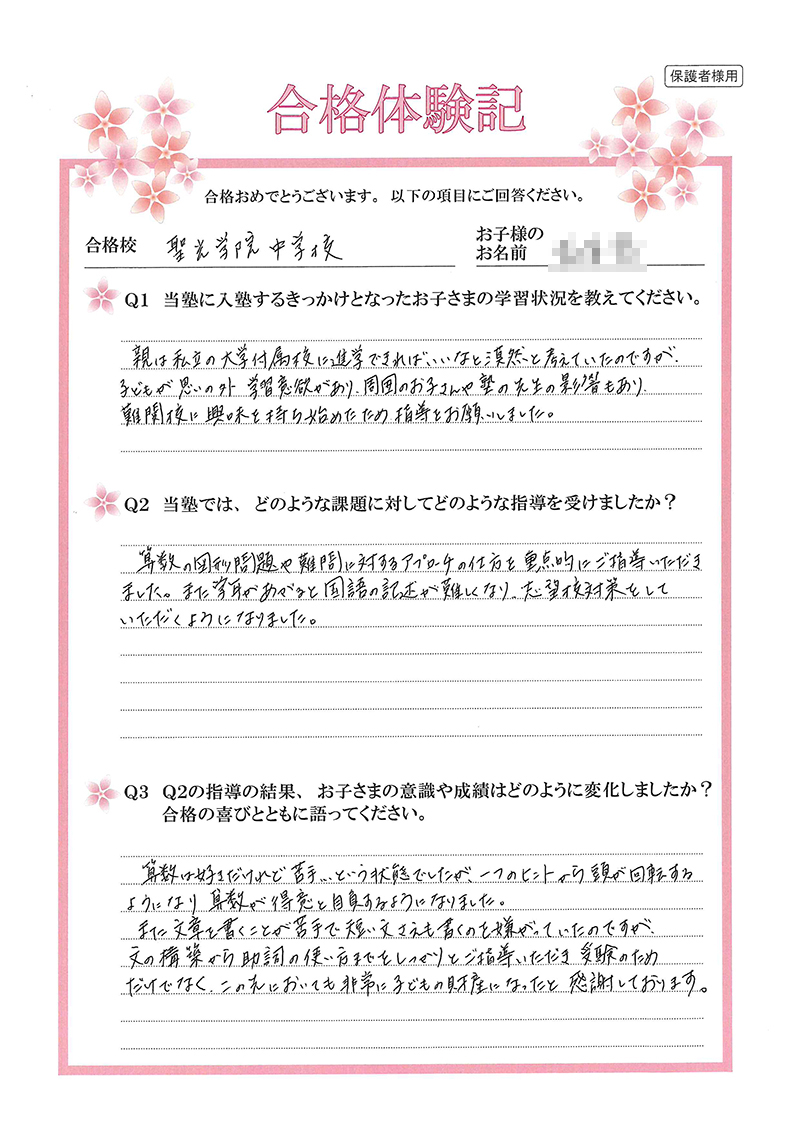 保護者様用
合格体験記
合格おめでとうございます。以下の項目にご回答ください。
合格校 聖光学院中学校
お子様の
お名前
Q1 当塾に入塾するきっかけとなったお子さまの学習状況を教えてください。
親は私立の大学付属校に進学できればいいなと漠然と考えていたのですが、
子どもが思いの外 学習意欲があり、周囲のお子さんや塾の先生の影響もあり、
難関校に興味を持ち始めたため 指導をお願いしました。
Q2 当塾では、どのような課題に対してどのような指導を受けましたか？
算数の図形問題や難問に対するアプローチの仕方を重点的にご指導いただき
ました。また学年があがると国語の記述が難しくなり、志望校対策をして
いただくようになりました。
Q3 Q2の指導の結果、お子さまの意識や成績はどのように変化しましたか？
合格の喜びとともに語ってください。
算数は好きだけれど苦手…という状態でしたが、一つのヒントから頭が回転する
ようになり算数が得意と自負するようになりました。
また文章を書くことが苦手で短い文さえも書くのを嫌がっていたのですが、
文の構築から助詞の使い方までをしっかりとご指導いただき 受験のため
だけでなく、この先においても非常に子どもの財産になったと 感謝しております。